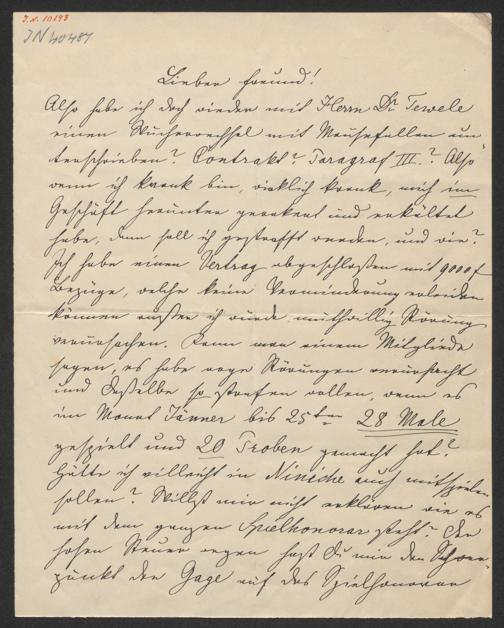 I.N. 10193
JN 40487
Lieber Freund!
Also habe ich doch wieder mit Herrn Dr Tewele
einen Wucherwechsel mit Mausefallen un=
terschrieben? Contrakt? Paragraf III.? Also
wenn ich krank bin, wirklich krank, mich im
Geschäft herunter gerackert und erkältet
habe, dann soll ich gestrafft werden, und wie?
Ich habe einen Vertrag abgeschloßen mit 9000 f
Bezüge, welche keine Verminderung erleiden
können außer ich würde muthwillig Störung
verursachen. Kann man einem Mitgliede
sagen, es habe arge Störungen verursacht
und dasselbe so strafen wollen, wenn es
im Monat Jänner bis 25ten 28 Male
gespielt und 20 Proben gemacht hat?
Hätte ich villeicht in Niniche auch mitspielen
sollen? Willst mir nicht erklären wie es
mit dem ganzen Spielhonorar steht? Der
hohen Steuer wegen hast Du mir den Schwer=
punkt der Gage auf das Spielhonorar